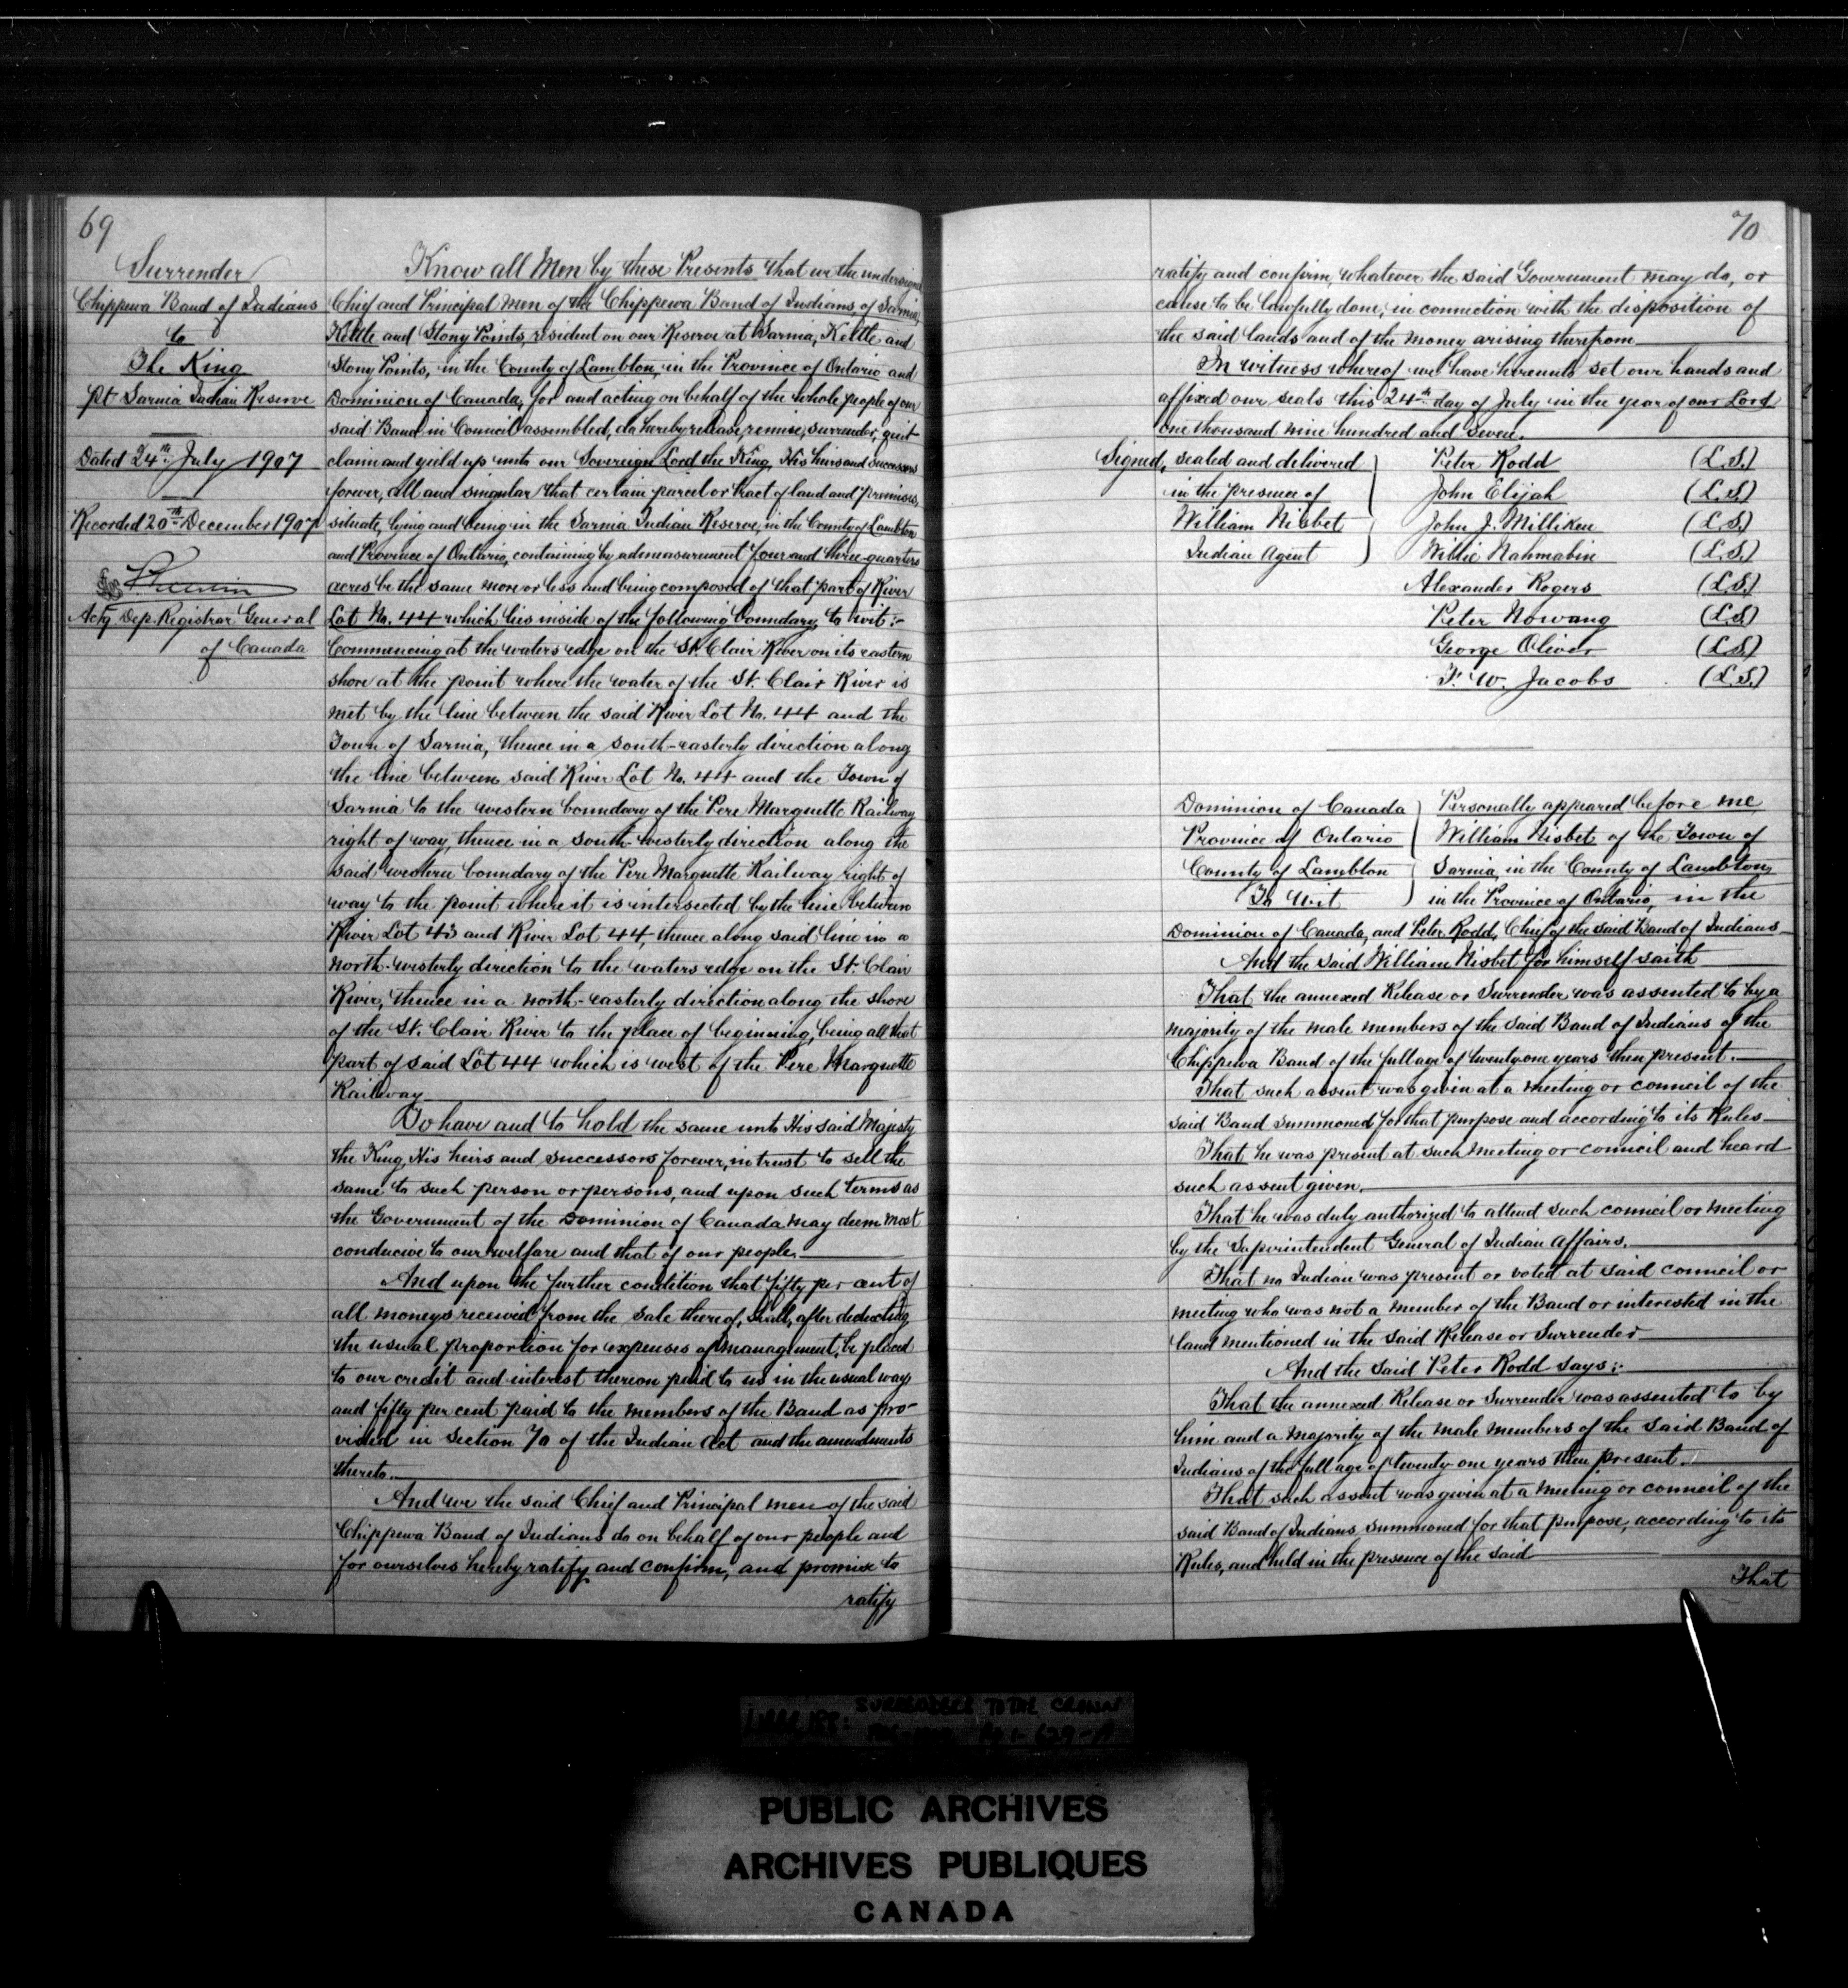 69
Surrender
Chippewa Band of Indians
to
The King
Pt Sarnia Indian Reserve
Dated 24th July 1907
Recorded 20th December 1907
Actg Dep. Registrar General
of Canada
Know all Men by these Presents that we the undersigned
Chief and Principal Men of the Chippewa Band of Indians, of Sarnia,
Kettle and Stony Points, resident on our Reserve at Sarnia, Kettle and
Stony Points, in the County of Lambton, in the Province of Ontario and
Dominion of Canada, for and acting on behalf of the whole people of our
said Band in Council assembled, do hereby release, remise, surrender, quit
claim and yield up unto our Sovereign Lord the King, His heirs and successors
forever, all and singular that certain parcel or tract of land and premises,
situate, lying and being in the Sarnia Indian Reserve, in the County of Lambton
and Province of Ontario, containing by admeasurement four and three-quarters
acres be the same more or less and being composed of that part of River
Lot No. 44 which lies inside of the following boundary, to wit:-
Commencing at the waters edge on the St. Clair River on its eastern
shore at the point where the water of the St. Clair River is
met by the line between the said River Lot No. 44 and the
Town of Sarnia, thence in a south-easterly direction along
the line between said River Lot No. 44 and the Town of
Sarnia to the western boundary of the Pere Marquette Railway
right of way, thence in a south-westerly direction along the
said western boundary of the Pere Marquette Railway right of
way to the point where it is intersected by the line between
River Lot 43 and River Lot 44, thence along said line in a
north-westerly direction to the waters edge on the St. Clair
River, thence in a north-easterly direction along the shore
of the St. Clair River to the place of beginning, being all that
part of said Lot 44 which is west of the Pere Marquette
Railway
To have and to hold the same unto His said Majesty
the King, His heirs and successors forever, in trust to sell the
same to such person or persons, and upon such terms as
the Government of the Dominion of Canada may deem most
conducive to our welfare and that of our people.
And upon the further condition that fifty per cent of
all moneys received from the sale thereof, shall, after deducting
the usual proportion for expenses of management, be placed
to our credit and interest thereon paid to us in the usual way,
and fifty per cent paid to the members of the Band as pro-
vided in Section 70 of the Indian Act and the amendments
thereto.
And we the said Chief and Principal men of the said
Chippewa Band of Indians do on behalf of our people and
for ourselves hereby ratify and confirm, and promise to
ratify
70
ratify and confirm, whatever the said Government may do, or
cause to be lawfully done, in connection with the disposition of
the said lands and of the money arising therefrom
In witness whereof we have hereunto set our hands and
affixed our seals this 24th day of July in the year of our Lord
one thousand nine hundred and seven.
Signed, sealed and delivered Peter Rodd (L.S.)
in the presence of John Elijah (L.S.)
William Nisbet John J. Milliken (L.S.)
Indian Agent Willie Nahmabin (L.S.)
Alexander Rogers (L.S.)
Peter Nowang (L.S.)
George Oliver (L.S.)
F. W. Jacobs (L.S.)
Dominion of Canada Personally appeared before me
Province of Ontario William Nisbet of the Town of
County of Lambton Sarnia, in the County of Lambton,
To Wit in the Province of Ontario, in the
Dominion of Canada, and Peter Rodd, Chief of the said Band of Indians
And the said William Nisbet for himself saith
That the annexed Release or Surrender was assented to by a
majority of the male members of the said Band of Indians of the
Chippewa Band of the full age of twenty one years then present.
That such assent was given at a meeting or council of the
said Band summoned for that purpose and according to its Rules
That he was present at such meeting or council and heard
such assent given.
That he was duly authorized to attend such council or meeting
by the Superintendent General of Indian Affairs.
That no Indian was present or voted at said council or
meeting who was not a member of the Band or interested in the
land mentioned in the said Release or Surrender
And the said Peter Rodd says:-
That the annexed Release or Surrender was assented to by
him and a majority of the male members of the said Band of
Indians of the full age of twenty-one years then present.
That such assent was given at a meeting or council of the
said Band of Indians summoned for that purpose, according to its
Rules, and held in the presence of the said
That
SURRENDERS TO THE CROWN
PUBLIC ARCHIVES
ARCHIVES PUBLIQUES
CANADA